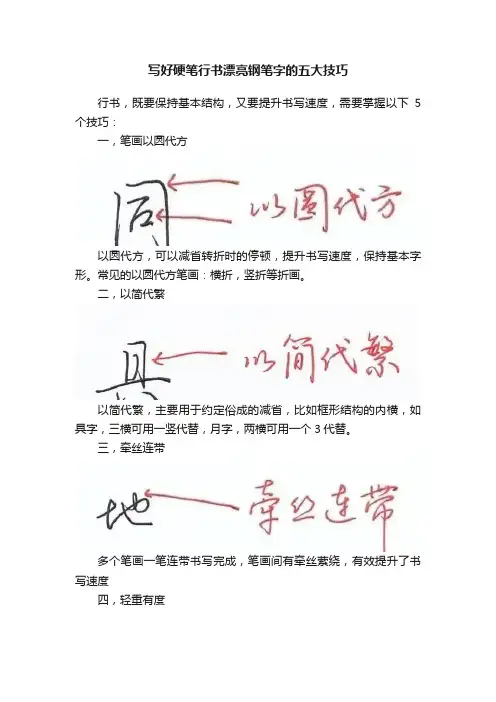 写好硬笔行书漂亮钢笔字的五大技巧
行书，既要保持基本结构，又要提升书写速度，需要掌握以下5
个技巧：
一，笔画以圆代方
同 以圆代方
以圆代方，可以减省转折时的停顿，提升书写速度，保持基本字
形。常见的以圆代方笔画：横折，竖折等折画。
二，以简代繁
具 以简代繁
以简代繁，主要用于约定俗成的减省，比如框形结构的内横，如
具字，三横可用一竖代替，月字，两横可用一个3代替。
三，牵丝连带
地 牵丝连带
多个笔画一笔连带书写完成，笔画间有牵丝萦绕，有效提升了书
写速度
四，轻重有度